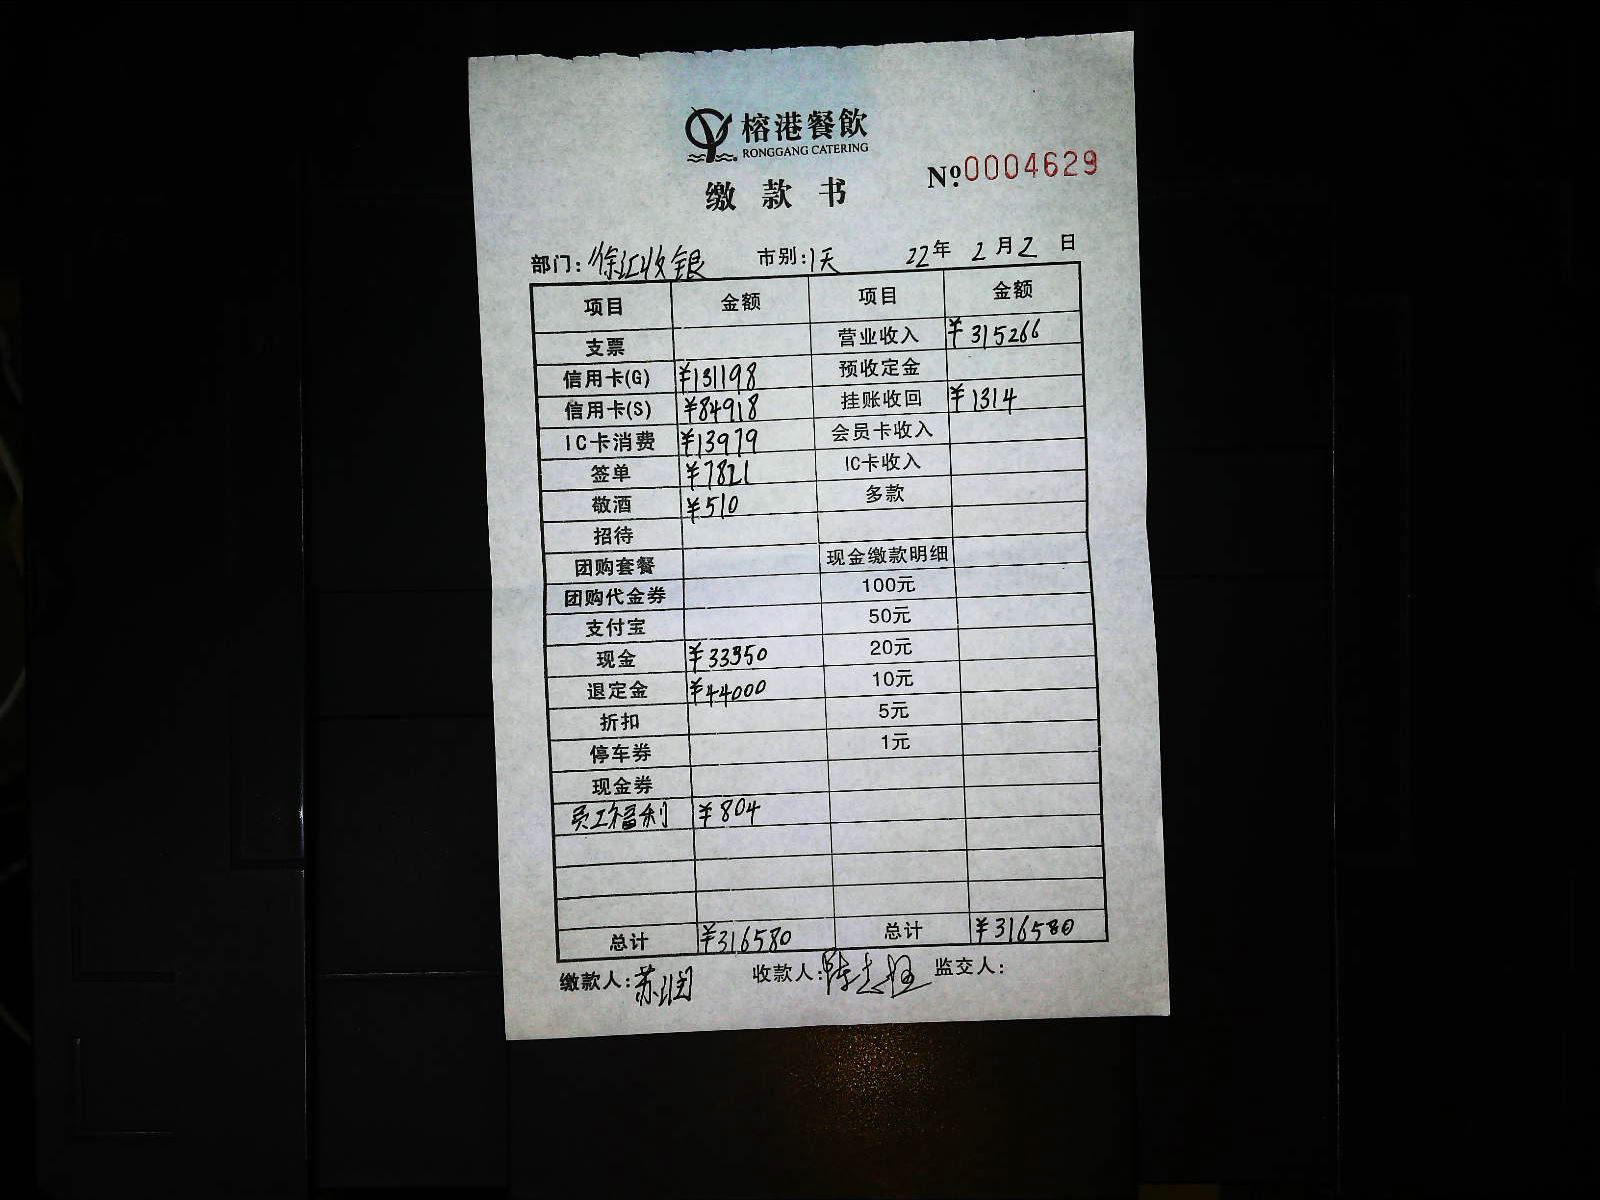 榕港餐飲
RONGGANG CATERING
№0004629
缴款书
部门:徐汇收银 市别:1天 22年2月2日
项目 金额 项目 金额
支票 营业收入 ¥315266
信用卡(G) ¥131198 预收定金
信用卡(S) ¥84918 挂账收回 ¥1314
IC卡消费 ¥13979 会员卡收入
签单 ¥7821 IC卡收入
敬酒 ¥510 多款
招待
团购套餐 现金缴款明细
团购代金券 100元
支付宝 50元
现金 ¥33350 20元
退定金 ¥44000 10元
折扣 5元
停车券 1元
现金券
员工福利 ¥804
总计 ¥316580 总计 ¥316580
缴款人:苏润 收款人:陈 监交人: